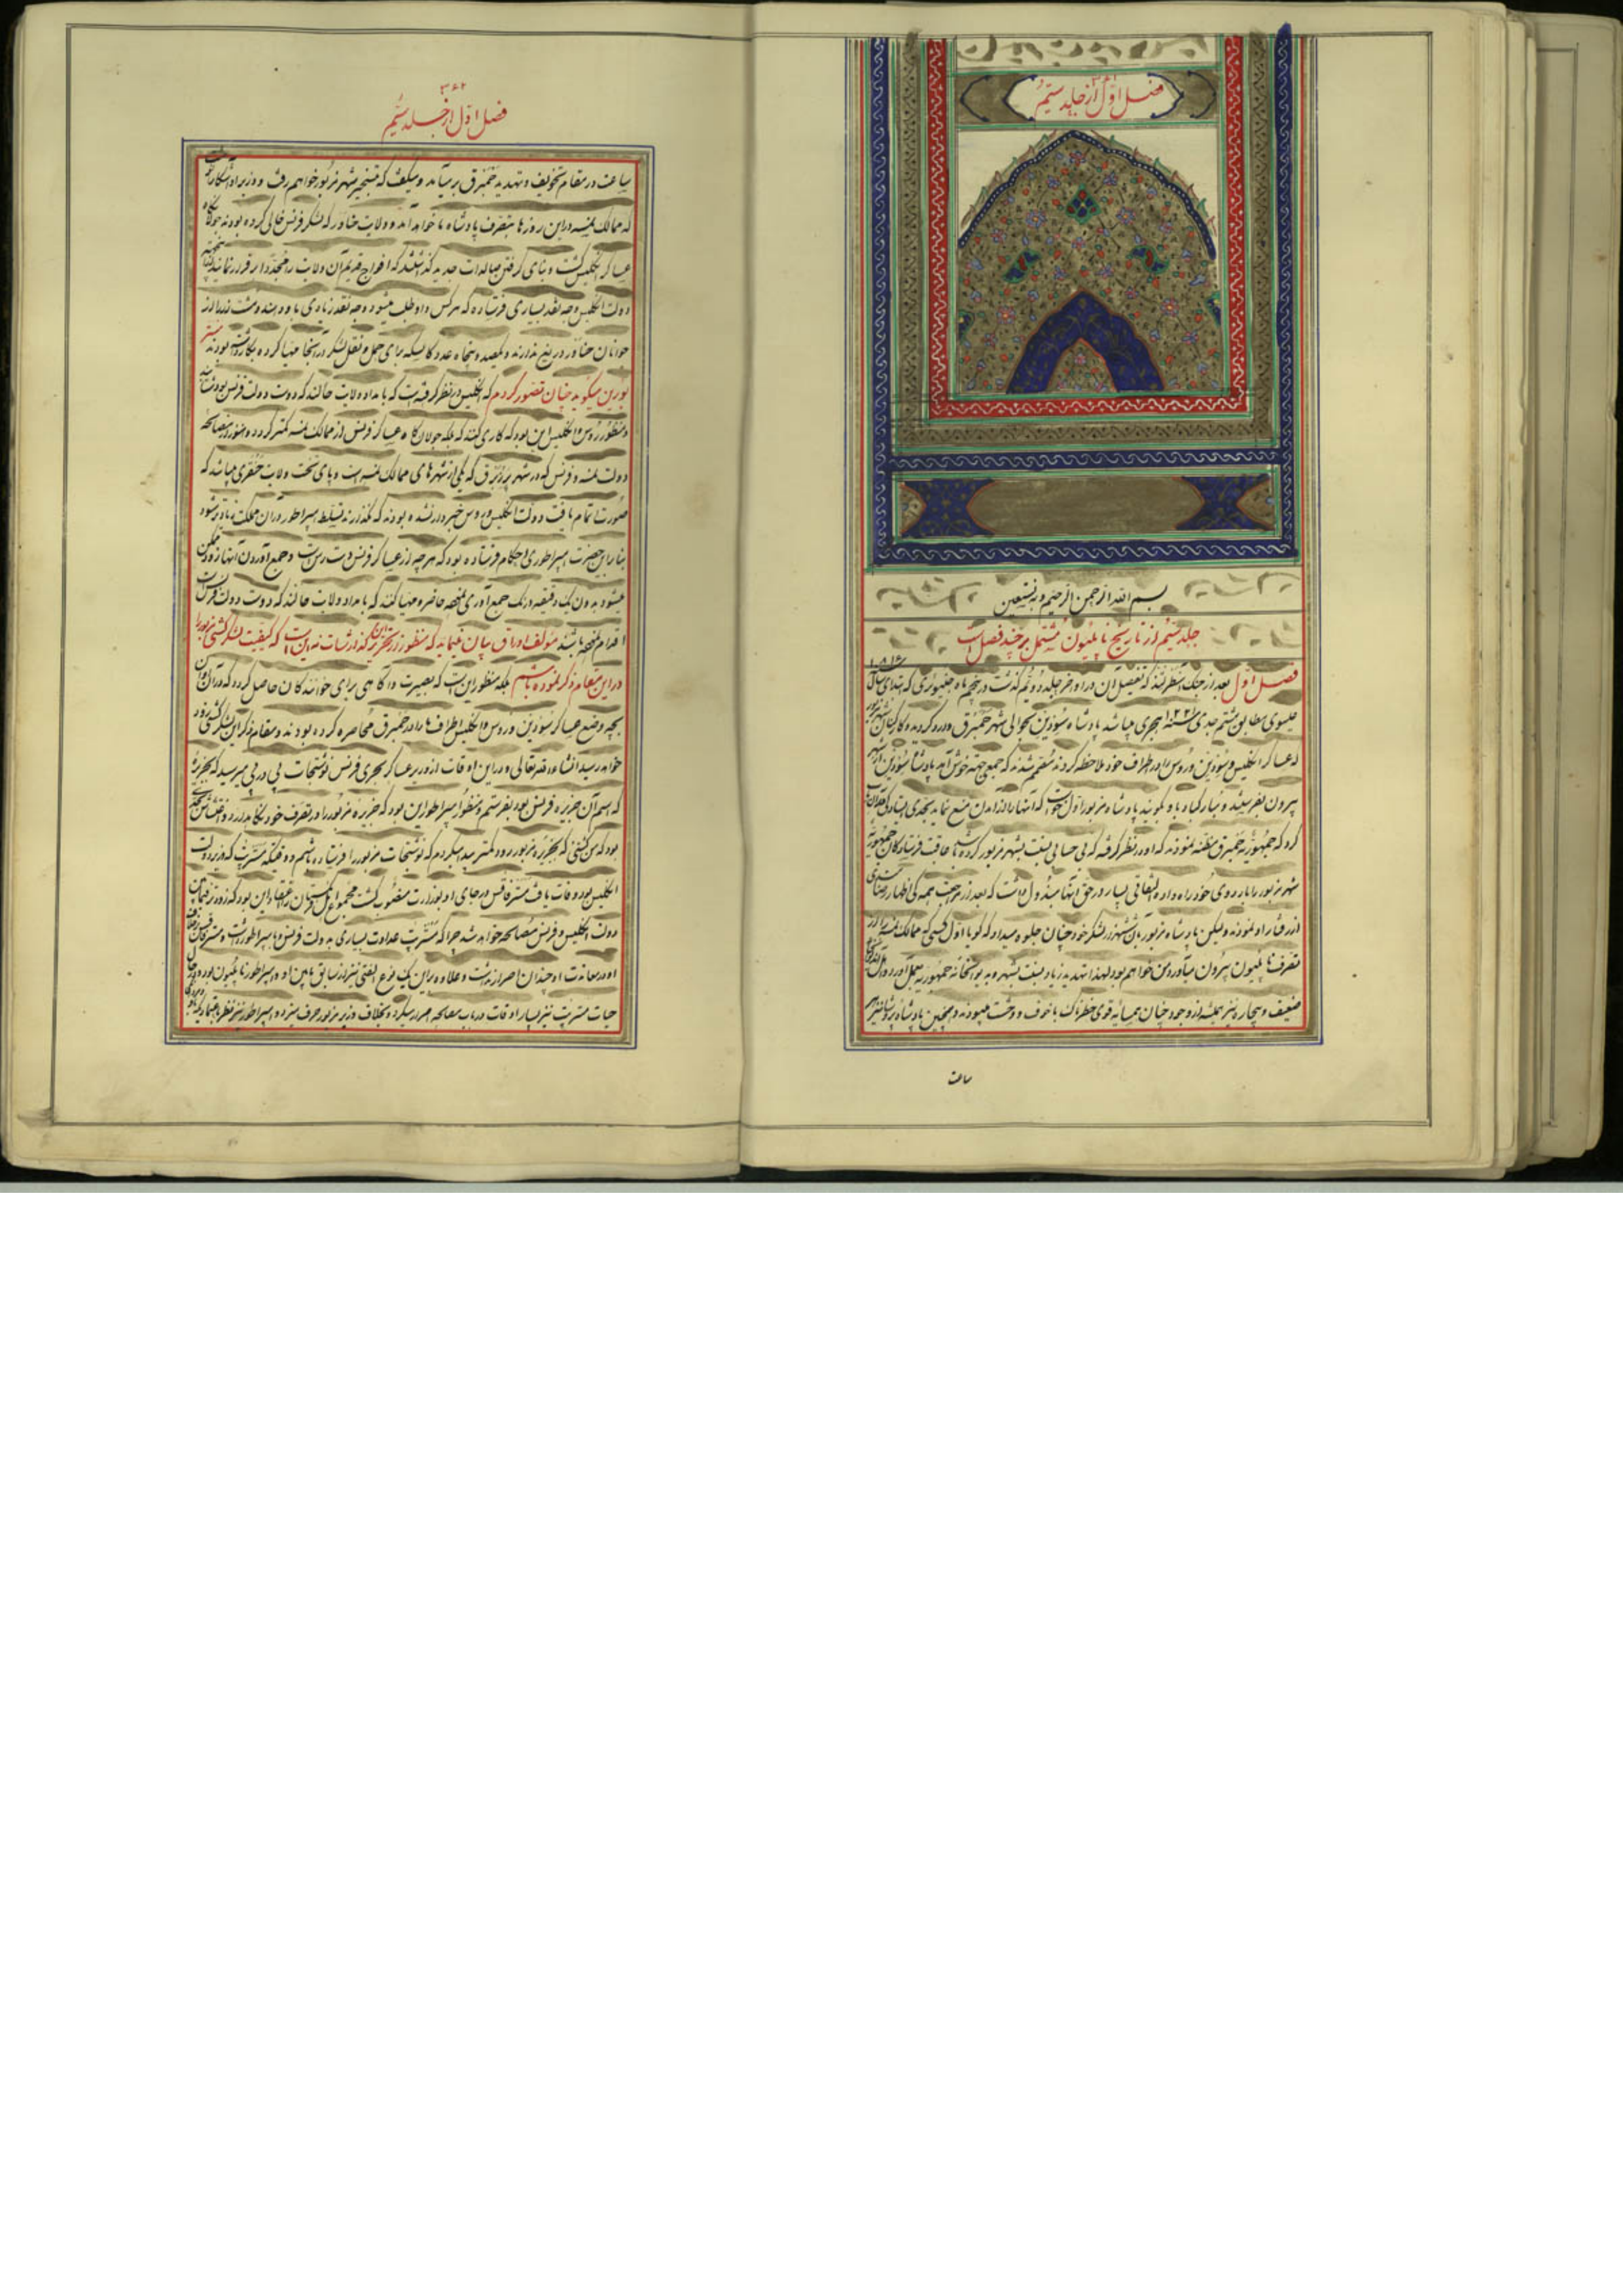 فصل اول از جلد سیم
۳۶۱
بسم الله الرحمن الرحیم و به نستعین
جلد سیم از تاریخ ناپلیون مشتمل بر چند فصل است
فصل اول بعد از جنک استرلتز که تفصیل آن در اواخر جلد دویم گذشت در پنجم ماه جنیوری که ابتدای سال ۱۸۰۶
عیسوی مطابق ششم جدی سنه ۱۲۲۱ هجری میباشد پادشاه سوذین بحوالی شهر حمبرق وارد کردید و کارکنان شهر مزبور
که عساکر انکلیس و سوذین و روس را در اطراف خود ملاحظه کردند مصمم شدند که جمعی جهة خوش آمد پادشاه سوذین از شهر
بیرون بفرستند و مبارکباد باو بکویند پادشاه مزبور اول خواست که آنها را از آمدن منع نماید
کرد که جمهوریه حمبرق مظنه نمودند که او در نظر گرفته که بی حسابی نسبت بشهر مزبور کرده باشد عاقبت فرستادکان جمهوریه
شهر مزبور را باردوی خود راه داده التفاتی بسیار در حق آنها مبذول داشت که بعد از مراجعت همه کی اظهار رضامندی
از رفتار او نمودند ولیکن پادشاه مزبور بآن شهر و لشکر خود چنان جلوه میداد که کویا اول کسی که ممالک نمسه را از
تصرف ناپلیون بیرون میآورد من خواهم بود لهذا تهدید زیاد نسبت بشهر
ضعیف و بیچاره نیز همیشه از وجود چنان همسایه قوی خطرناک با خوف و وحشت میبودند و همچنین پادشاه پروشا نیز هر
ساعت
۳۶۲
فصل اول از جلد سیم
ساعت در مقام تخویف و تهدید حمبرق بر میآمد و میکفت که بتسخیر شهر مزبور خواهم رفت و وزیر او آشکارا میکفت
که ممالک نمسه در این روزها بتصرف پادشاه ما خواهد آمد و ولایت حناور که لشکر فرنس خالی کرده بودند جولانکاه
عساکر انکلیس کشت و بنای گرفتن صالدات جدید گذاشتند که افواج قدیم آن ولایت را مجددا برقرار نمایند
دولت انکلیس وجه نقد بسیاری فرستاده که هر کس داوطلب میشود وجه نقد زیادی باو بدهند
جوانان حناور دریغ ندارند و یکصد و پنجاه عدد کالسکه برای حمل و نقل لشکر در آنجا مهیا کرده بکار داشته بودند
بورین میکوید چنان تصور کردم که انکلیس در نظر گرفته است که بامداد ولایت هالند که دوست دولت فرنس بود
و منظور روس و انکلیس این بود که کاری کنند که بلکه جولانکاه عساکر فرنس از ممالک نمسه کمتر کردد و هنوز از مصالحه
دولت نمسه و فرنس که در شهر پرزبرق که یکی از شهرهای ممالک نمسه است و پای تخت ولایت هنقری میباشد که
صورت اتمام یافت دولت انکلیس و روس خبردار نشده بودند که نگذارند تسلط امپراطور در آن مملکت زیادتر شود
بنابراین حضرت امپراطوری احکام فرستاده بود که هر چه از عساکر فرنس در دست است و جمع آوردن آنها زود ممکن
میشود بدون یک دقیقه درنک جمع آوری نموده حاضر و مهیا کنند که بامداد ولایت هالند که دوست دولت فرنس است
اقدام نموده باشند مؤلف اوراق بیان مینماید که منظور از تحریر این گذارشات نه این است که کیفیت لشکرکشی مزبور را
در این مقام ذکر نموده باشم بلکه منظور این است که بصیرت و آکاهی برای خوانندکان حاصل کردد که در آن اوان
بچه وضع عساکر سوذین و روس و انکلیس اطراف ما را در حمبرق محاصره کرده بودند و مقام ذکر این لشکرکشی زود
خواهد رسید انشاءالله تعالی و در این اوقات از وزیر عساکر بحری فرنس نوشتجات پی در پی میرسید که بجزیره
که اسم آن جزیره فرنس بود بفرستم و منظور امپراطور این بود که جزیره مزبور را در تصرف خود نکاهدارد
بود که من کشتی که بجزیره مزبور رود کمتر پیدا میکردم که نوشتجات مزبور را فرستاده باشم و وقتیکه مستر پت که وزیر دولت
انکلیس بود وفات یافت مستر فاقس در جای او بوزارت منصوب کشت مجموع اهل فرنکستان را اعتقاد این بود که زود در میان
دولت انکلیس و فرنس مصالحه خواهد شد چرا که مستر پت عداوت بسیاری بدولت فرنس و با امپراطور داشت و مستر فاقس برخلاف
او در معاندت او چندان اصرار نداشت و علاوه بر این یک نوع الفتی نیز از سابق مابین او و امپراطور ناپلیون بود و در حال
حیات مستر پت نیز بسیار اوقات در باب مصالحه اصرار میکرد و بخلاف وزیر مزبور حرف میزد و امپراطور نیز نظر باعتمادیکه باو